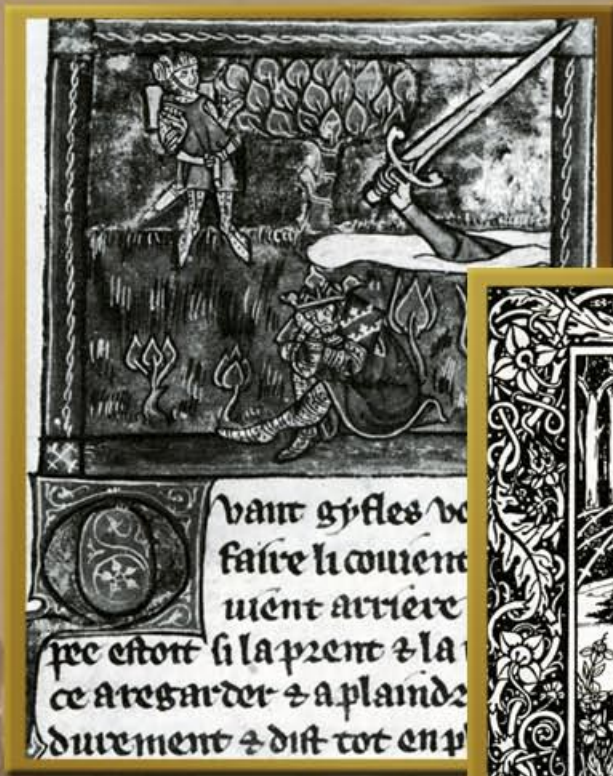 Quant gyfles vo
faire li couient
uient arriere
pee estoit si la prent ⁊ la
ce a regarder ⁊ a plaindr
durement ⁊ dist tot en p